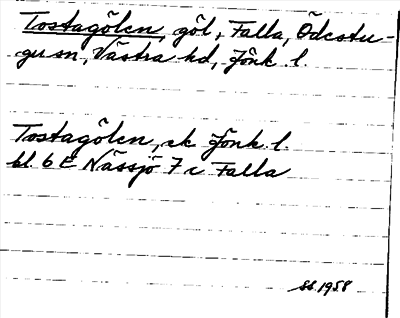 Tostagölen, göl, Falla, Ödestu-
gu sn, Västra hd, Jönk. l.
Tostagölen, ek Jönk. l.
bl. 6 E Nässjö 7 c Falla
1958